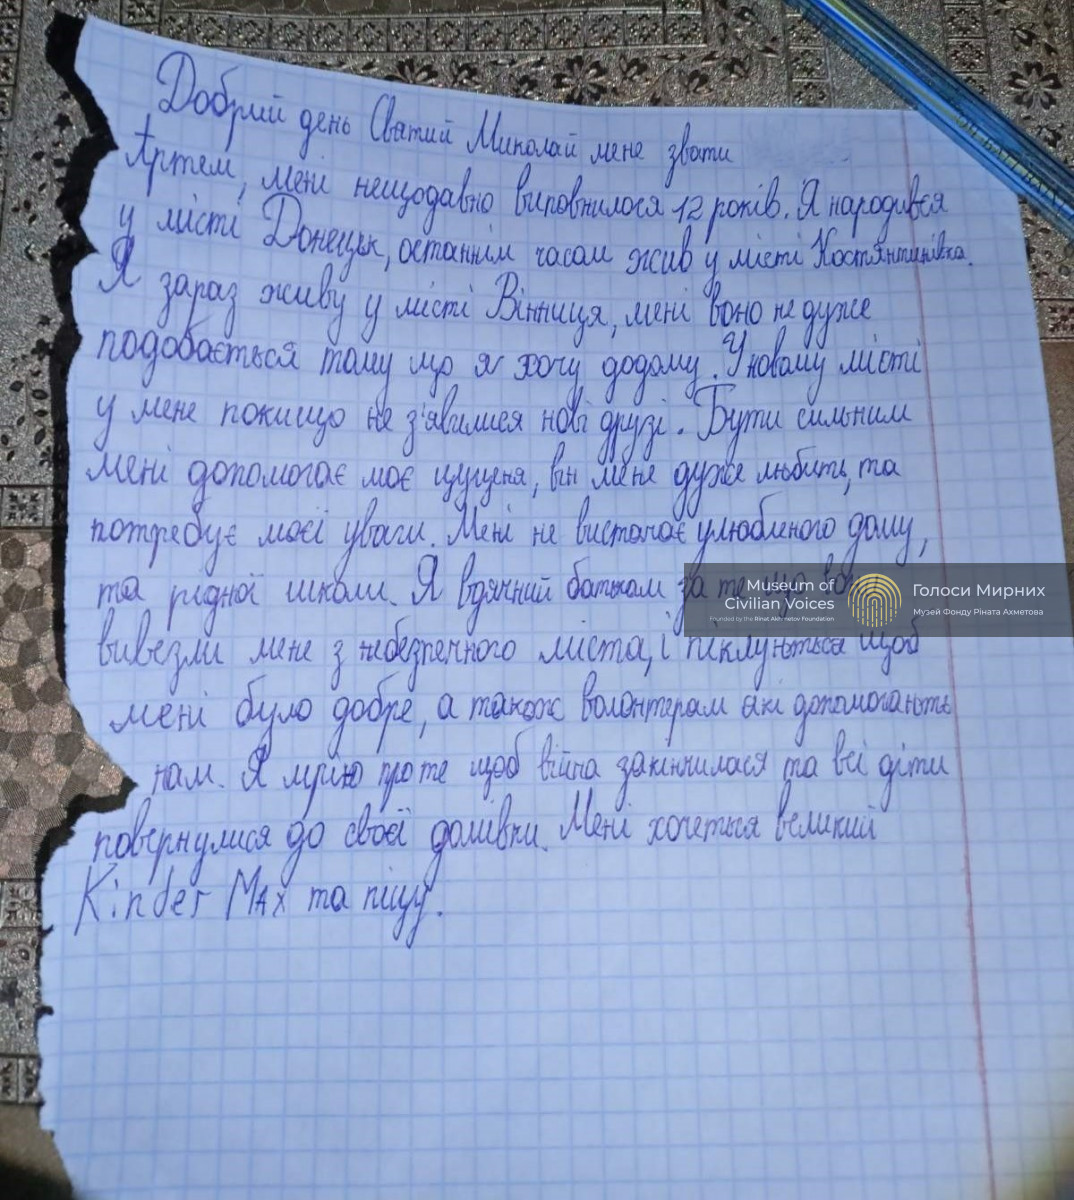 Добрий день Святий Миколай мене звати
Артем, мені нещодавно виповнилося 12 років. Я народився
у місті Донецьк, останнім часом жив у місті Костянтинівка.
Я зараз живу у місті Вінниця, мені воно не дуже
подобається тому що я хочу додому. У новому місті
у мене покищо не з'явилися нові друзі. Бути сильним
мені допомогає моє цуценя, він мене дуже любить, та
потребує моєї уваги. Мені не вистачає улюбленого дому,
та рідної школи. Я вдячний батькам за те що
Museum of Civilian Voices
Founded by the Rinat Akhmetov Foundation
Голоси Мирних
Музей Фонду Ріната Ахметова
вивезли мене з небезпечного міста, і піклуються щоб
мені було добре, а також волонтерам які допомогають
нам. Я мрію про те щоб війна закінчилася та всі діти
повернулися до своєї домівки. Мені хочеться великий
Kinder MAX та піцу.